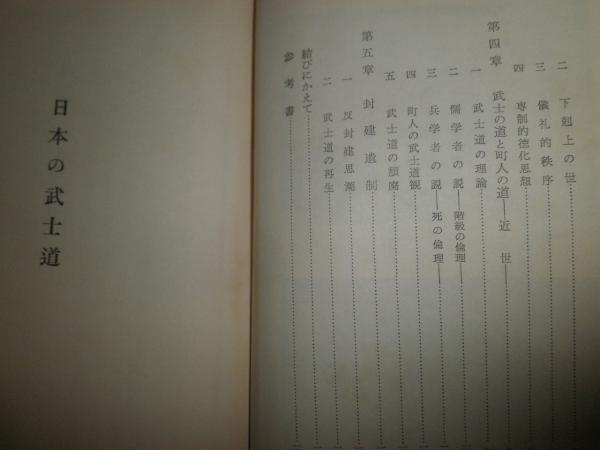 二 下剋上の世
三 儀礼的秩序
四 専制的徳化思想
第四章 武士の道と町人の道――近世――
一 武士道の理論
二 儒学者の説――階級の倫理――
三 兵学者の説――死の倫理――
四 町人の武士道観
五 武士道の頽廃
第五章 封建遺制
一 反封建思潮
二 武士道の再生
結びにかえて
参考書
日本の武士道